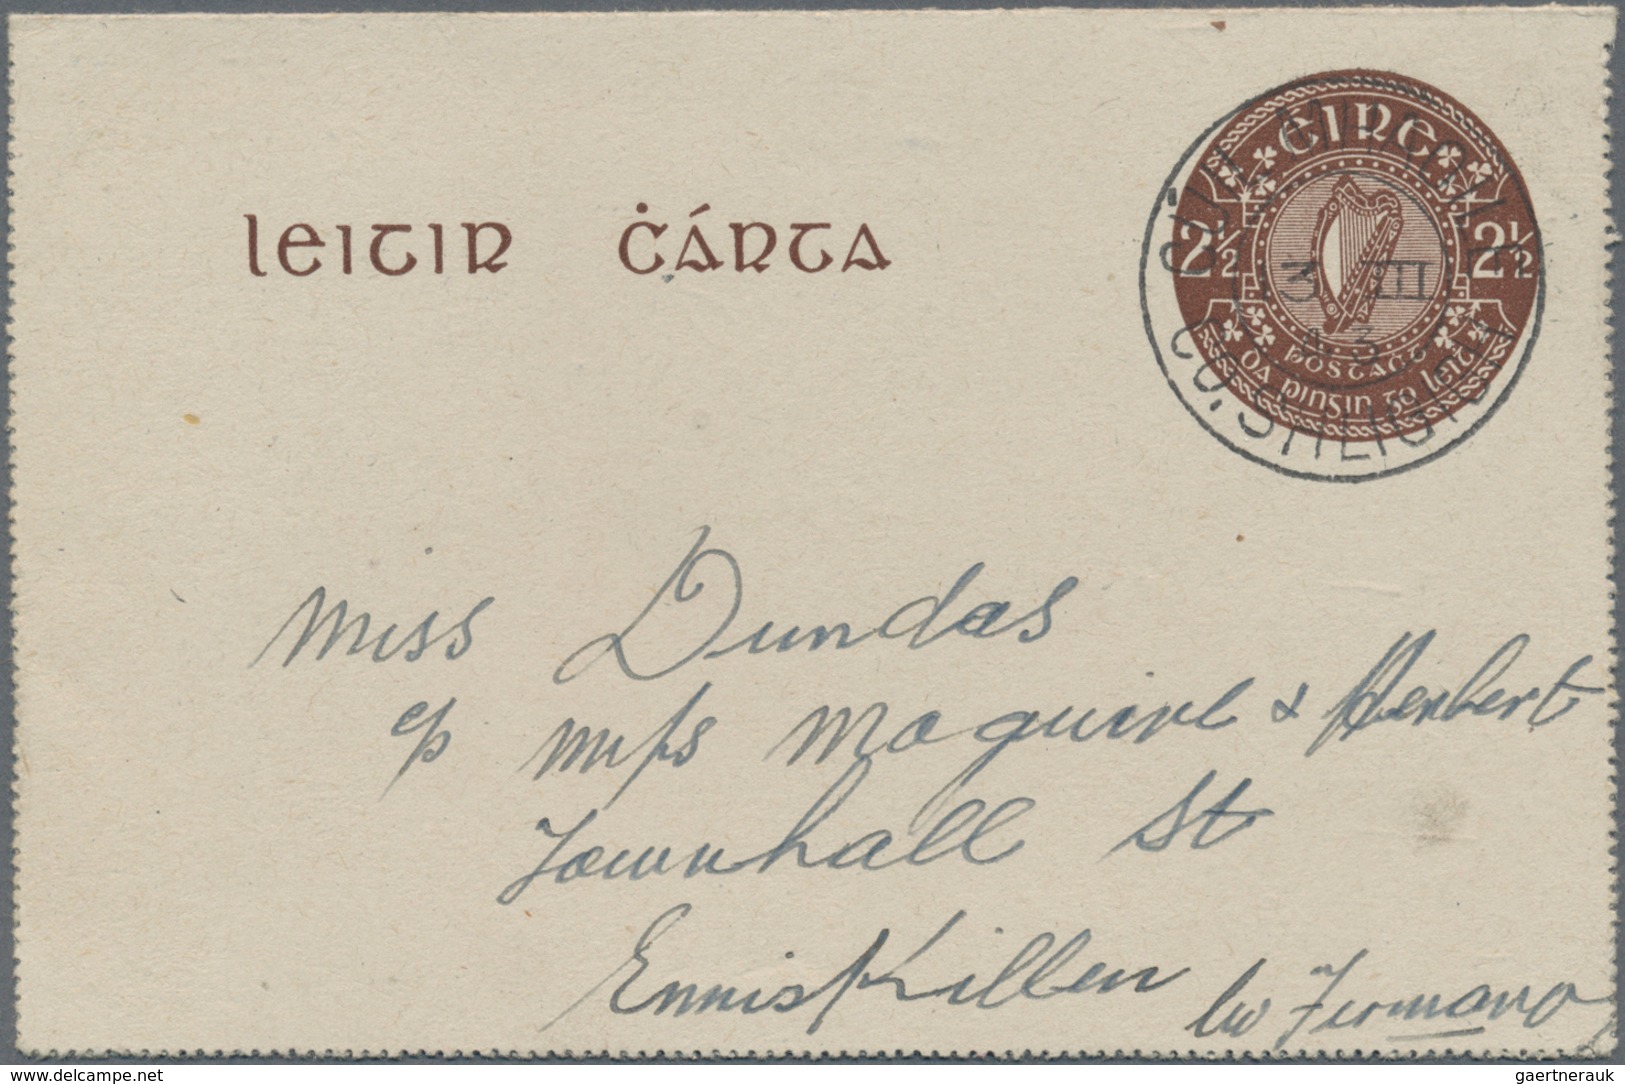 leitir ċárta
éire
2½ 2½
postage
dá pingin go leit
3 III
43
CO. SHLIGIGH
Miss Dundas
c/o Mrss Maguire & Herbert
Townhall St
EnnisKillen
Co Fermana
www.delcampe.net
gaertnerauk